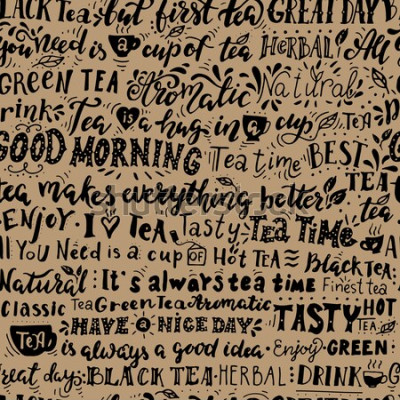 BLACK Tea but first tea GREAT DAY
you need is a cup of tea HERBAL All
GREEN TEA Aromatic Natural
Drink Tea is a hug in a cup TEA
GOOD MORNING Tea time BEST
tea makes everything better! TEA
ENJOY I TEA Tasty TEA TIME tea
All You Need is a cup OF Hot TEA Black Tea:
Natural: It's always tea time Finest tea
Classic Tea Green Tea Aromatic TASTY HOT TEA
TEA HAVE a NICE DAY
is always a good idea. Enjoy GREEN:
great day: BLACK TEA HERBAL: DRINK
shutterstock